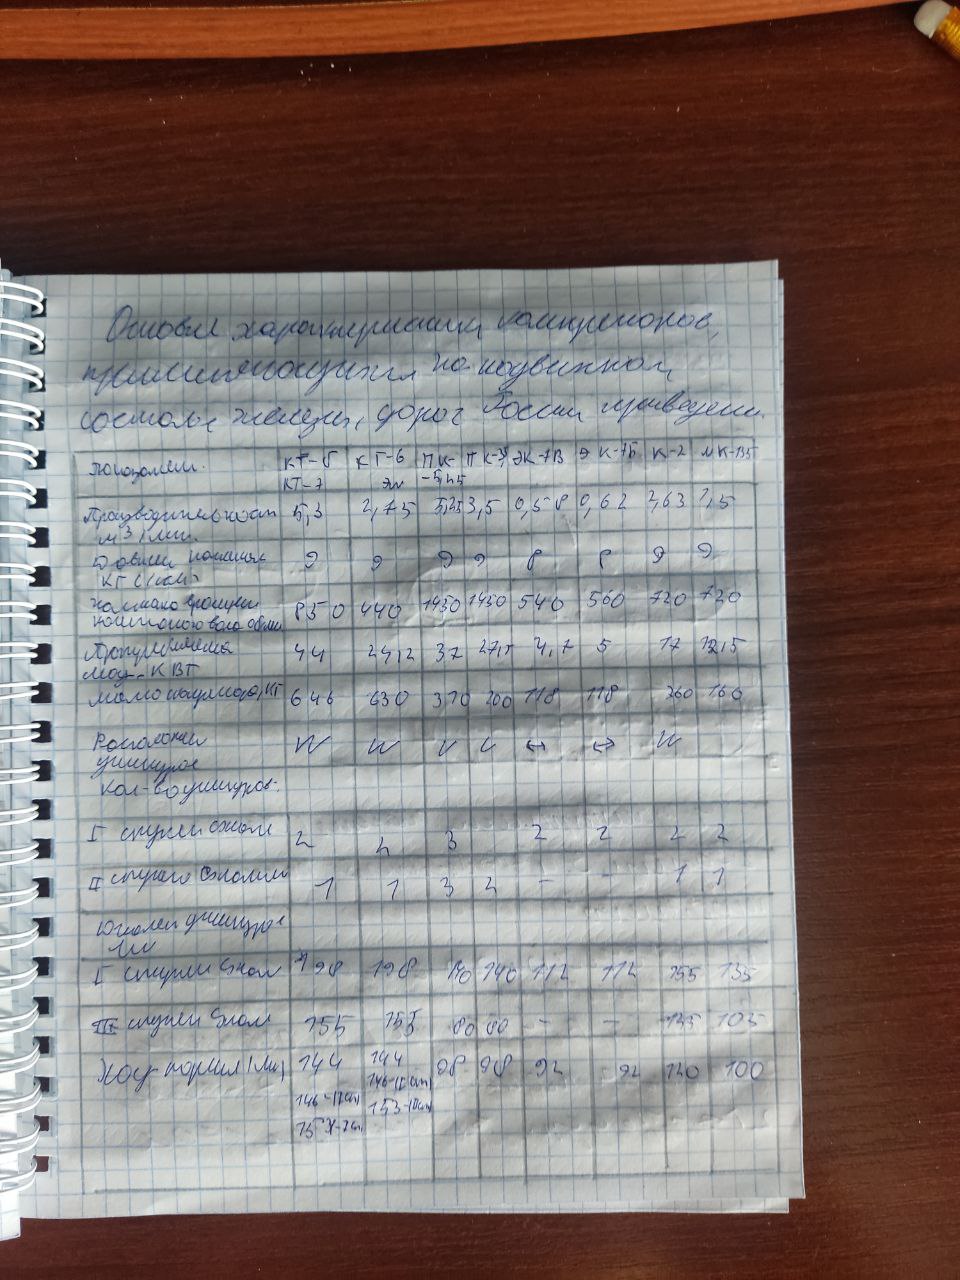 Основные характеристики компрессоров,
применяющихся на подвижном
составе железных дорог России приведены
показатели КТ-6 КТ-6 ПК- ПК-3,5 ЭК-7В ЭК-7Б К-2 МК-135
КТ-7 Эл -5,25
Производительность 5,3 2,75 5,25 3,5 0,58 0,62 2,63 1,5
м3/мин.
Давление 9 9 9 9 8 8 9 9
КГС/см2
вращения 850 440 1450 1450 540 560 720 720
вала об/мин
44 24,2 37 4,7 5 17 12,5
мощ- КВТ
646 630 310 200 118 118 260 160
Расположение W W V V ↔ ↔ W
цилиндров
кол-во цилиндров.
I ступени сжат 2 2 3 2 2 2 2
II ступени 1 1 3 2 – – 1 1
цилиндров
мм
I ступени сжат 198 198 140 140 112 112 155 135
ступени сжат 155 155 80 80 – – 125 105
Ход поршня (мм) 144 144 98 98 92 92 120 100